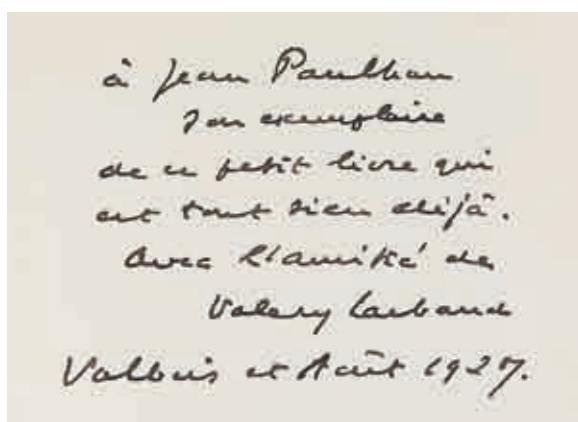 à Jean Paulhan
son exemplaire
de ce petit livre qui
est tout sien déjà.
Avec l'amitié de
Valery Larbaud
Valbois et Août 1927.